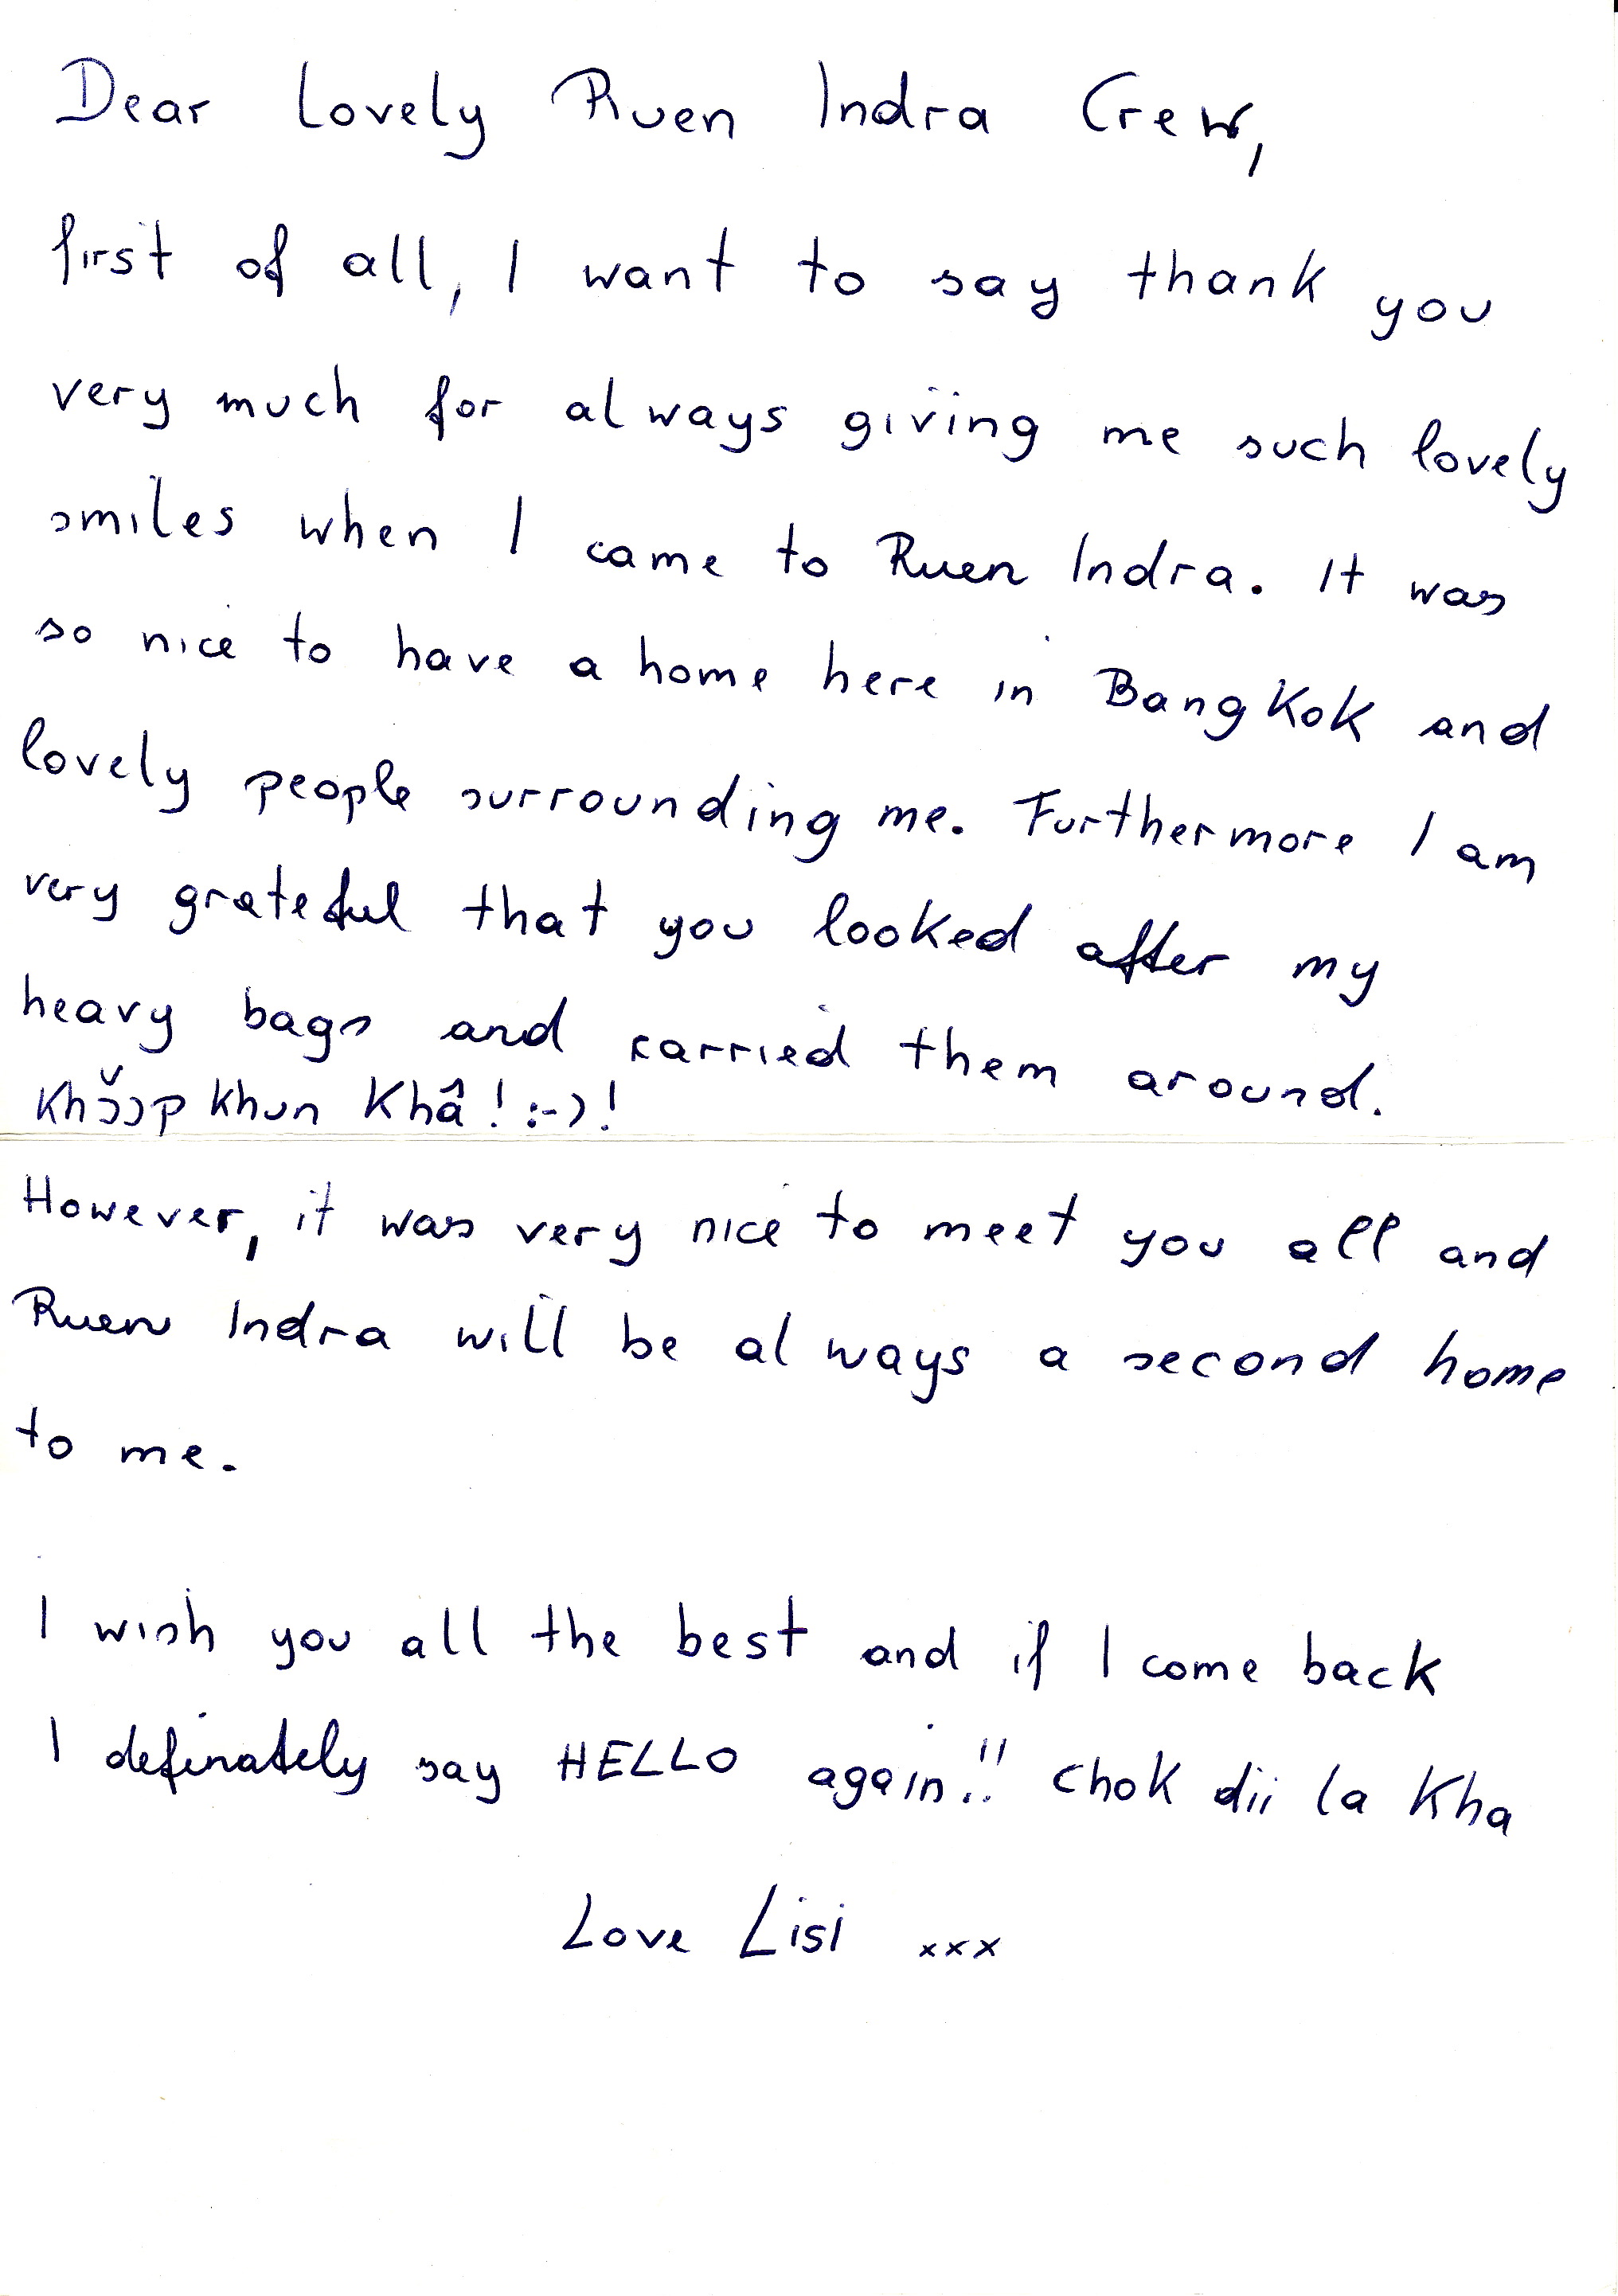 Dear Lovely Ruen Indra Crew,
first of all, I want to say thank you
very much for always giving me such lovely
smiles when I came to Ruen Indra. It was
so nice to have a home here in Bangkok and
lovely people surrounding me. Furthermore I am
very grateful that you looked after my
heavy bags and carried them around.
Khɔ̌ɔp khun Khâ! :-)!
However, it was very nice to meet you all and
Ruen Indra will be always a second home
to me.
I wish you all the best and if I come back
I definately say HELLO again!! Chok dii la Kha
Love Lisi xxx